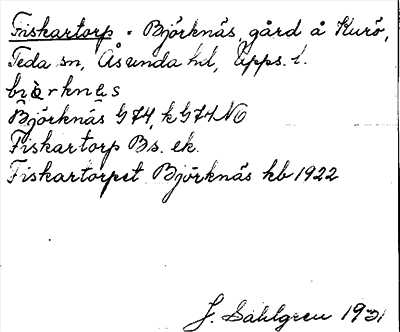 Fiskartorp. Björknäs, gård å Kurö,
Teda sn, Åsunda hd, Upps. l.
Björknäs G 74, k G 74 NO
Fiskartorp Bs. ek.
Fiskartorpet Björknäs kb 1922
J. Sahlgren 1931